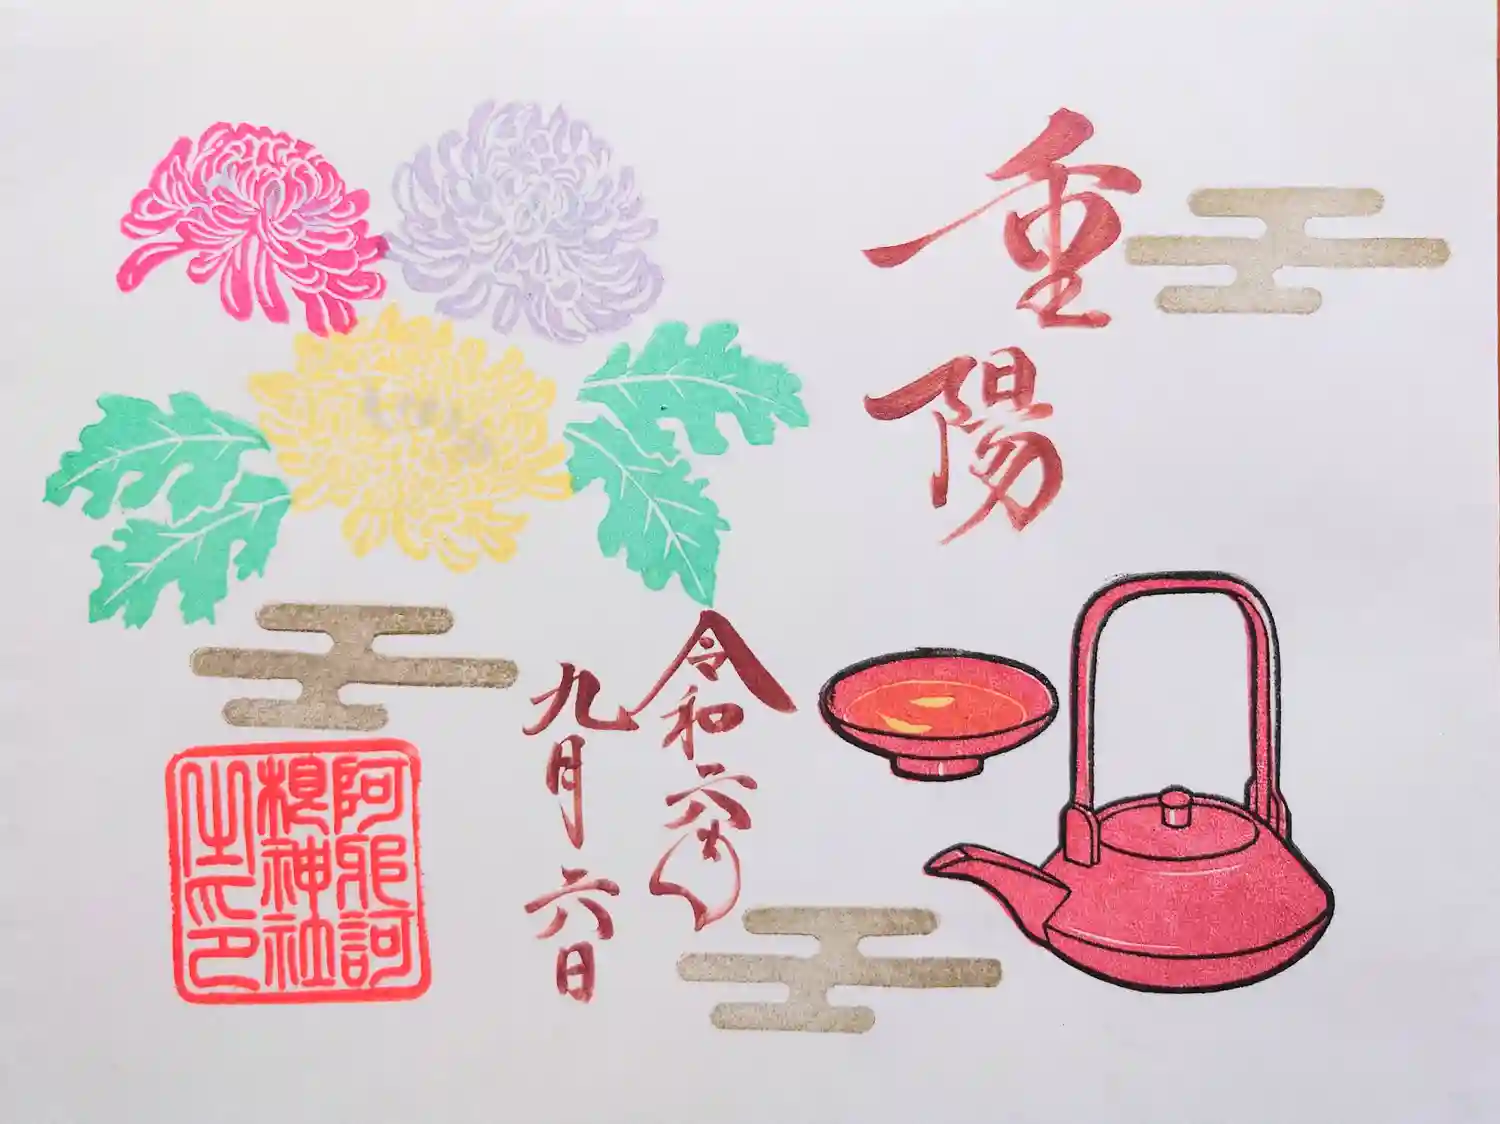 重陽
令和六年
九月六日
阿邪訶
根神社
之印